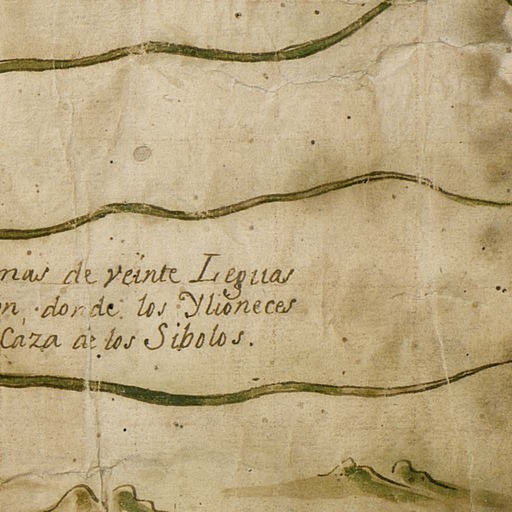 mas de veinte Leguas
on, donde los Ylioneces
Caza de los Sibolos.